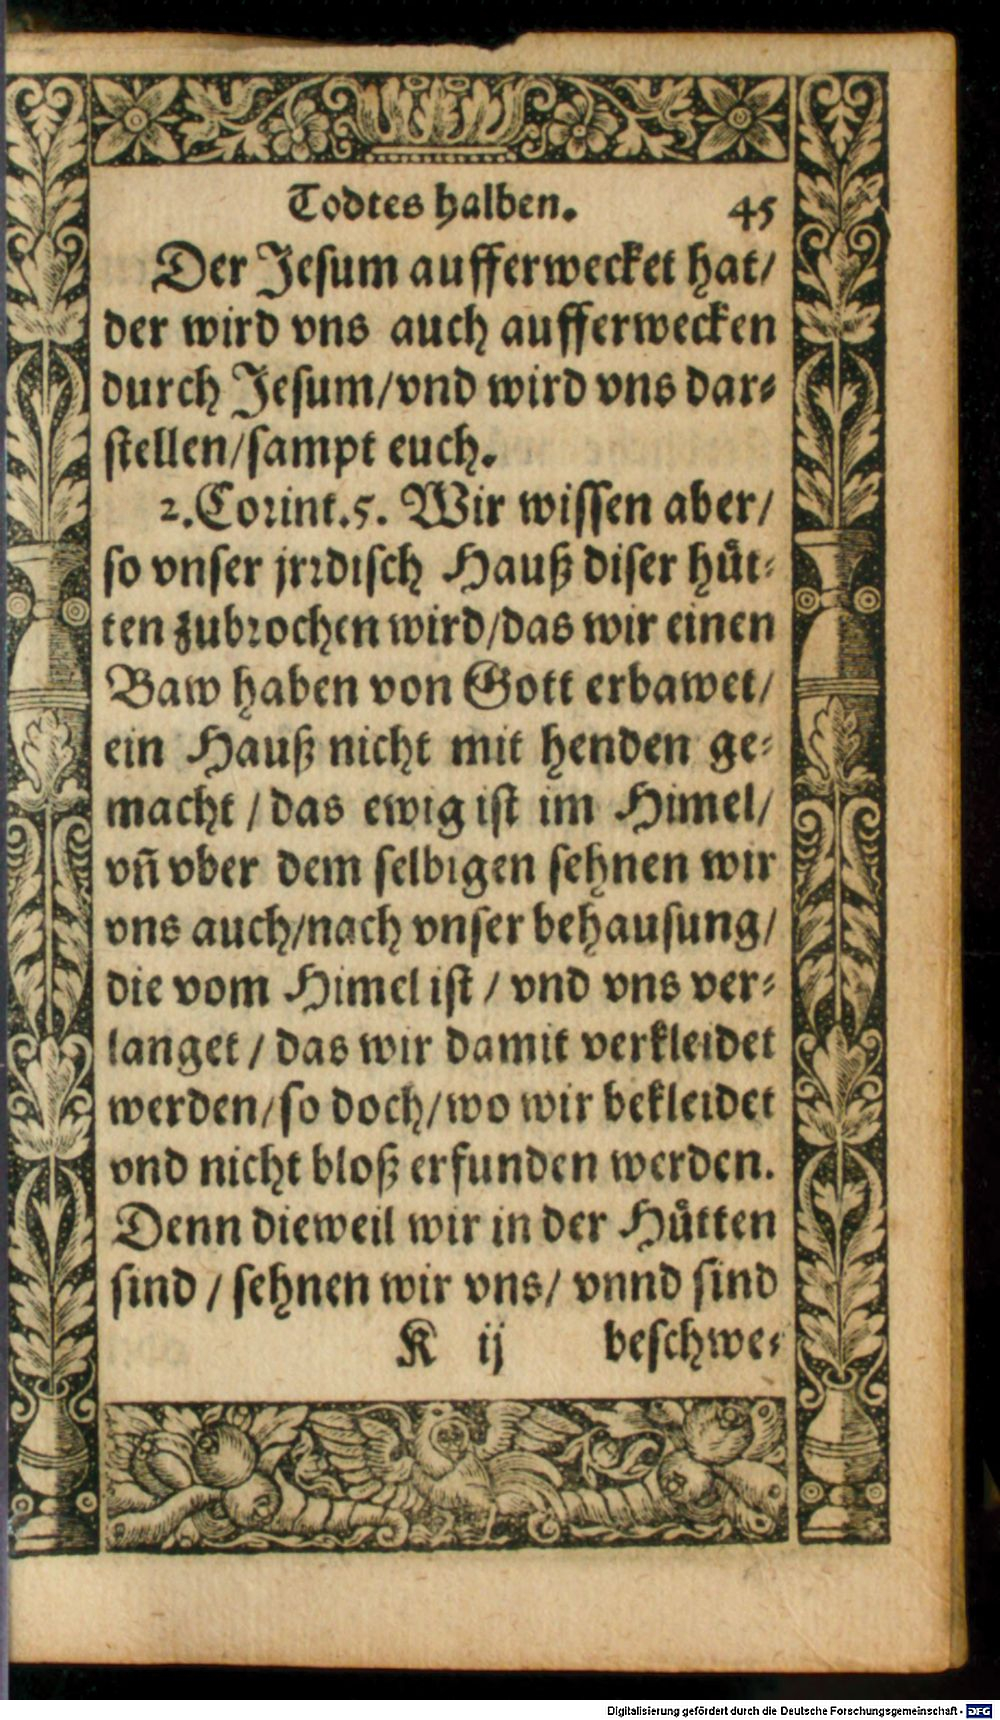 Todtes halben. 45
Der Jesum aufferwecket hat/
der wird vns auch aufferwecken
durch Jesum/vnd wird vns dar⸗
stellen/sampt euch.
2.Corint.5. Wir wissen aber/
so vnser jrrdisch Hauß diser huͤt⸗
ten zubrochen wird/das wir einen
Baw haben von Gott erbawet/
ein Hauß nicht mit henden ge⸗
macht / das ewig ist im Himel/
vñ vber dem selbigen sehnen wir
vns auch/nach vnser behausung/
die vom Himel ist / vnd vns ver⸗
langet / das wir damit verkleidet
werden/so doch/wo wir bekleidet
vnd nicht bloß erfunden werden.
Denn dieweil wir in der Huͤtten
sind / sehnen wir vns/ vnnd sind
K ij beschwe⸗
Digitalisierung gefördert durch die Deutsche Forschungsgemeinschaft - DFG